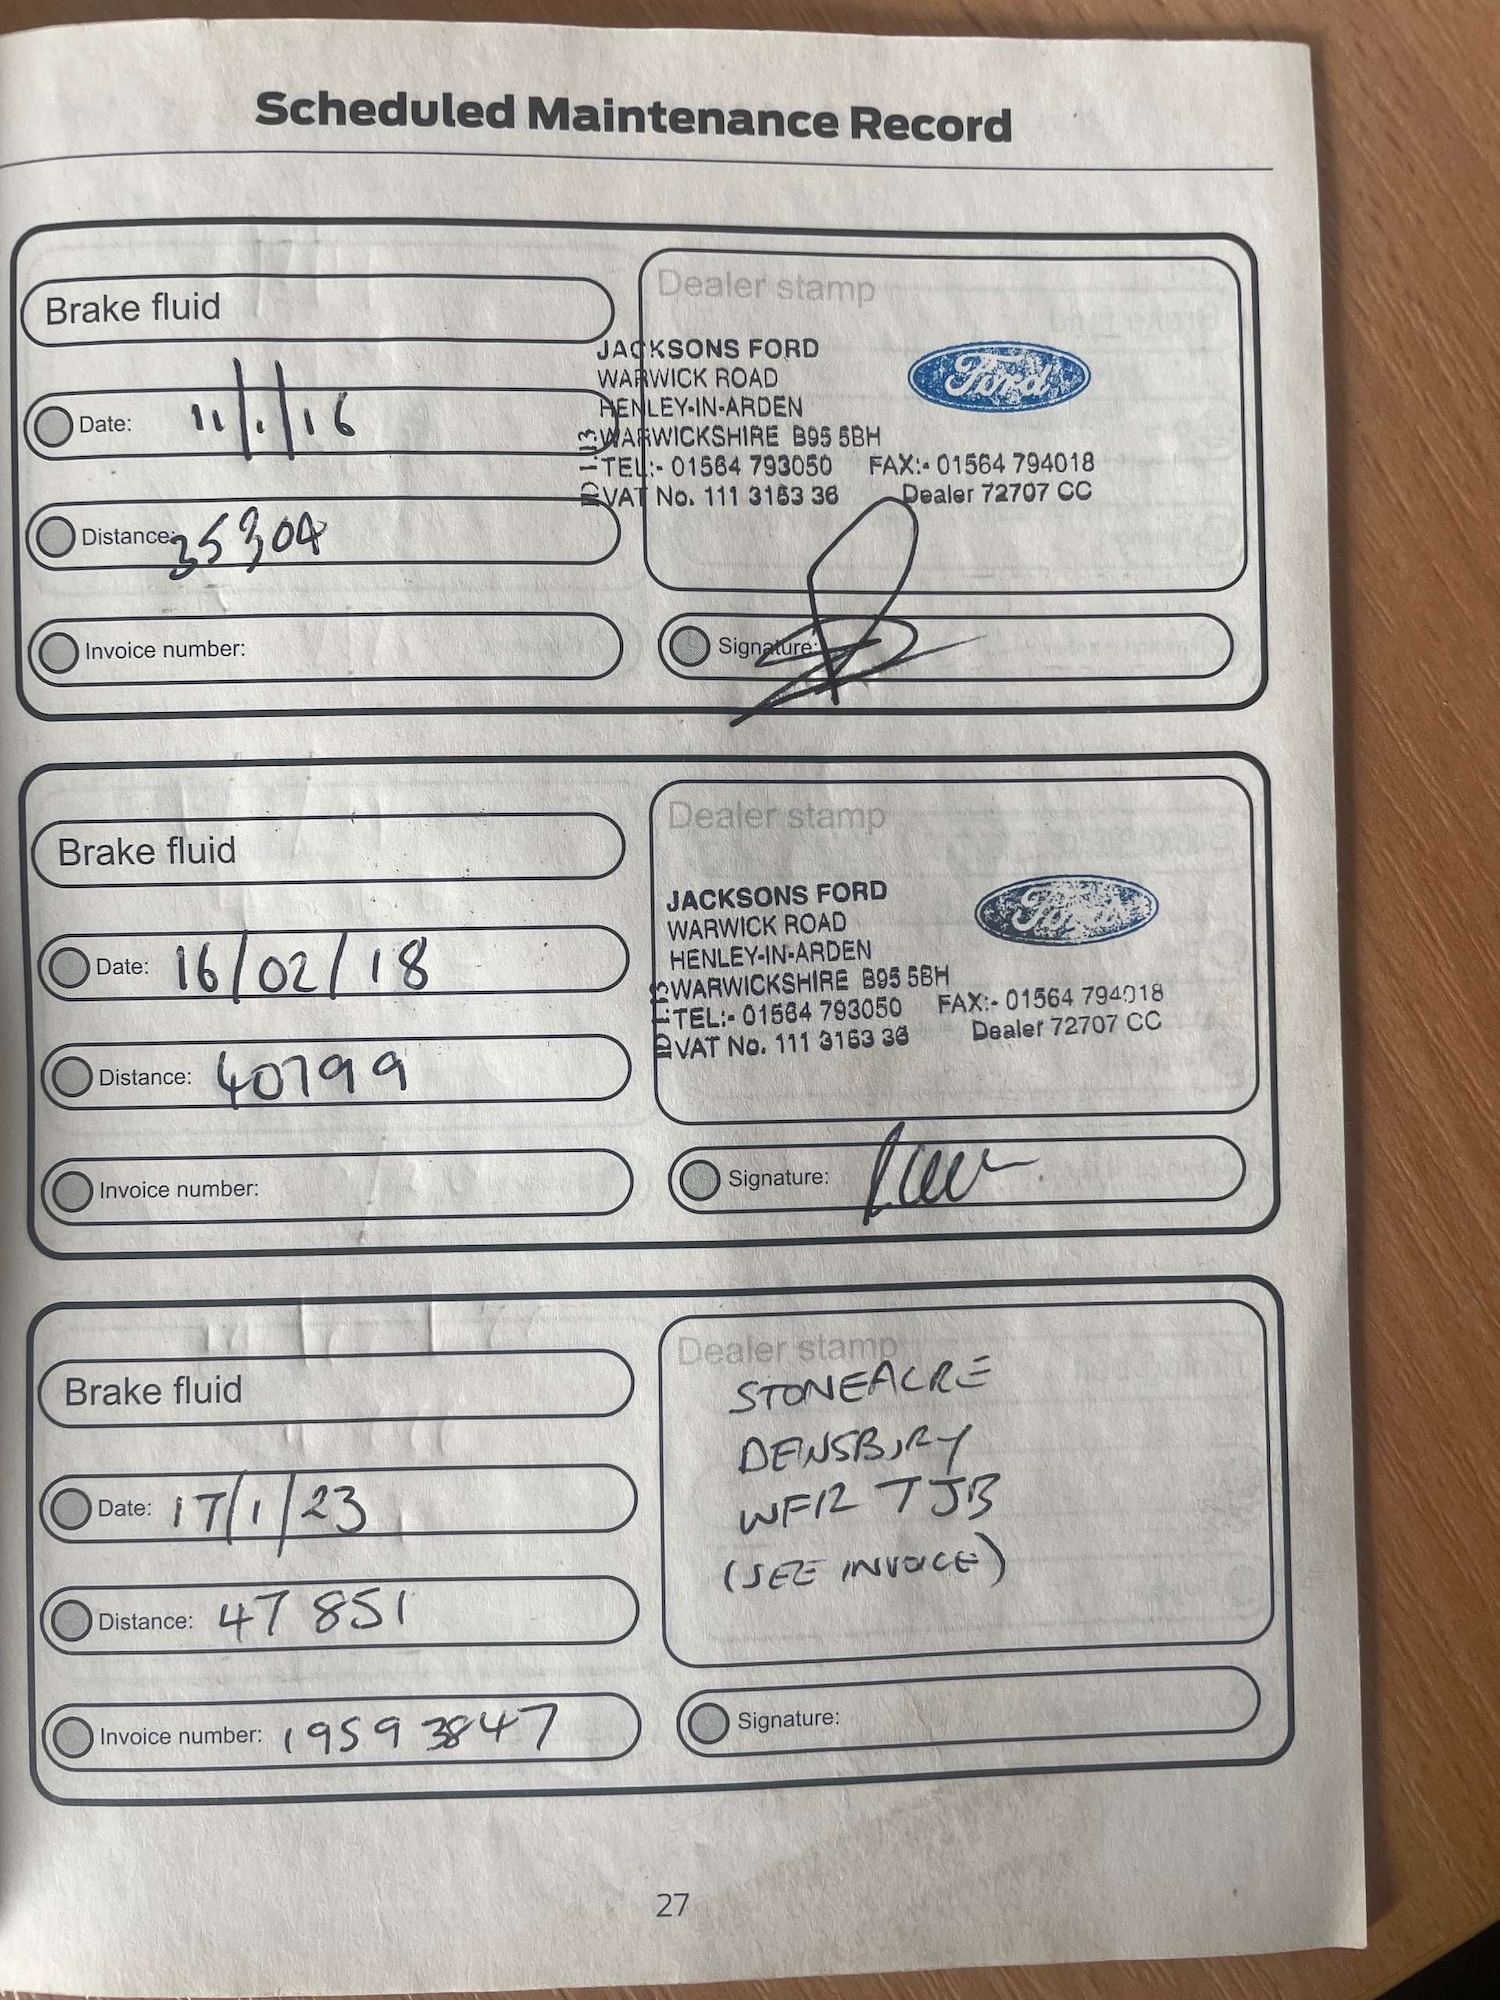 Scheduled Maintenance Record
Brake fluid
Date: 11/1/16
Distance: 35304
Invoice number:
Dealer stamp
JACKSONS FORD
WARWICK ROAD
HENLEY-IN-ARDEN
WARWICKSHIRE B95 5BH
TEL:- 01564 793050 FAX:- 01564 794018
VAT No. 111 3163 36 Dealer 72707 CC
Ford
Signature:
Brake fluid
Date: 16/02/18
Distance: 40799
Invoice number:
Dealer stamp
JACKSONS FORD
WARWICK ROAD
HENLEY-IN-ARDEN
WARWICKSHIRE B95 5BH
TEL:- 01564 793050 FAX:- 01564 794018
VAT No. 111 3163 36 Dealer 72707 CC
Ford
Signature:
Brake fluid
Date: 17/1/23
Distance: 47 851
Invoice number: 19593847
Dealer stamp
STONEACRE
DEWSBURY
WF12 7JB
(SEE INVOICE)
Signature:
27